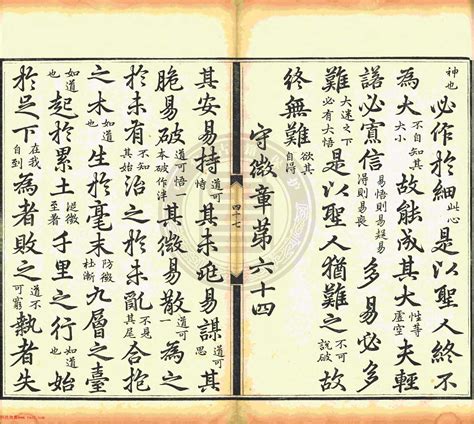 神也必作於細此心是以聖人終不
為大不自知其大小故能成其大性等虛空夫輕
諾必寡信易悟則易得則易喪多易必多
難大迷之下必有大悟是以聖人猶難之不可說破故
終無難欲其自得
守微章第六十四
四十七
其安易持道可恃其未兆易謀道可思其
脆易破道可悟一本破作泮其微易散道可一為之
於未有不知其始治之於未亂不見其尾合抱
之木如道也生於毫末防微杜漸九層之臺
如道也起於累土從微至著千里之行如道也始
於足下在我自到為者敗之道不可窮執者失